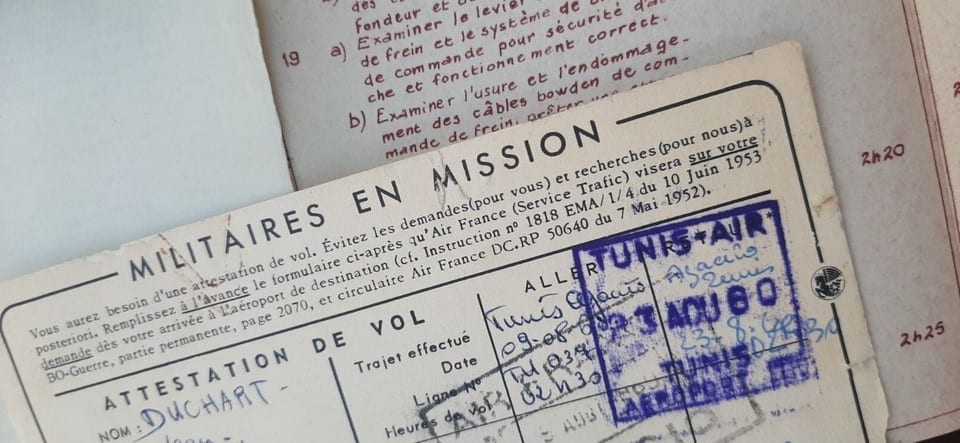 fondeur et
19 a) Examiner le levier
de frein et le système de
de commande pour sécurité d'at-
che et fonctionnement correct.
b) Examiner l'usure et l'endommage-
ment des câbles bowden de com-
mande de frein, prêter une
2h20
2h25
MILITAIRES EN MISSION
Vous aurez besoin d'une attestation de vol. Évitez les demandes (pour vous) et recherches (pour nous) à
posteriori. Remplissez à l'avance le formulaire ci-après qu'Air France (Service Trafic) visera sur votre
demande dès votre arrivée à l'aéroport de destination (cf. Instruction n° 1818 EMA/1/4 du 10 Juin 1953
BO-Guerre, partie permanente, page 2070, et circulaire Air France DC.RP 50640 du 7 Mai 1952).
ATTESTATION DE VOL
NOM : DUCHART -
ALLER
Trajet effectué Tunis Ajaccio Ajaccio Tunis
Date 09-08
Ligne N° TU 037
Heures de Vol 02H30
TUNIS-AIR
23 AOU 60
TUNIS
AEROPORT